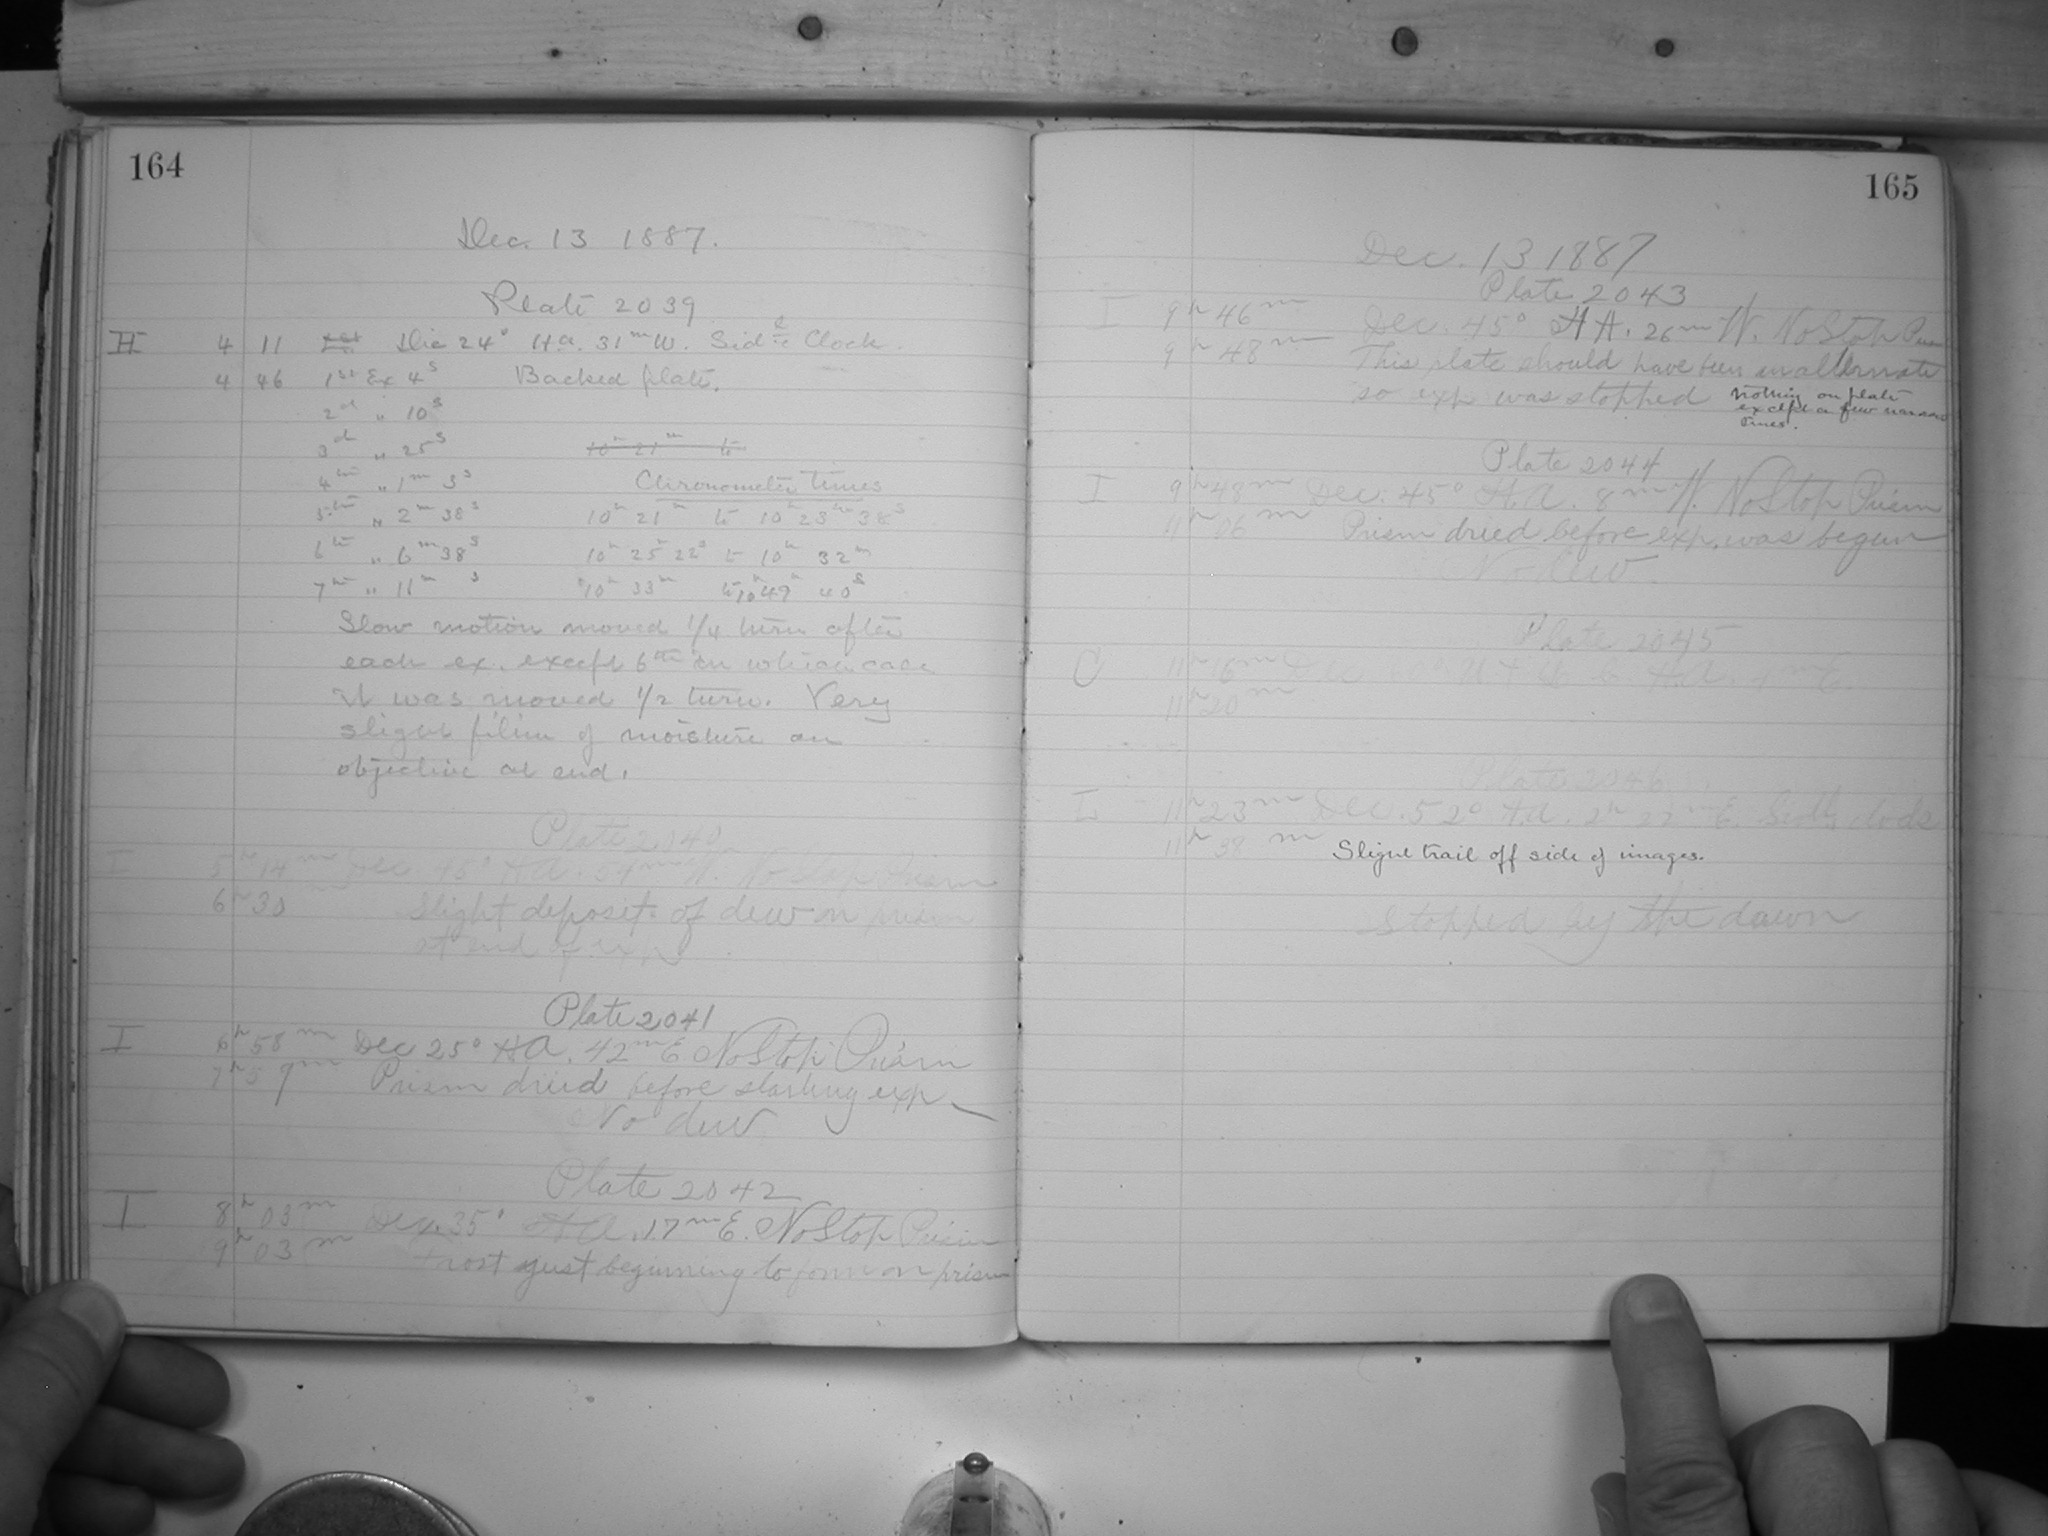 164
Dec. 13 1887.
Plate 2039
II 4 11 Dec 24° H.a. 31m W. Sid'l Clock.
4 46 1st Ex 4s Backed plate.
2d " 10s
3d " 25s 10h 21m to
4th " 1m 3s Chronometer times
5th " 2m 38s 10h 21m to 10h 23m 38s
6th " 6m 38s 10h 25m 22s to 10h 32m
7th " 11m s 10h 33m to 10h 49m 40s
Slow motion moved 1/4 turn after
each ex. except 6th in which case
it was moved 1/2 turn. Very
slight film of moisture on
objective at end.
Plate 2040
I 5h 14m Dec 45° H.A. 54m W. No Stop Prism
6h 30m Slight deposit of dew on prism
at end of exp
Plate 2041
I 6h 58m Dec 25° H.A. 42m E No Stop Prism
7h 59m Prism dried before starting exp
No dew
Plate 2042
I 8h 03m Dec. 35° H.A. 17m E. No Stop Prism
9h 03m Frost just beginning to form on prism
165
Dec. 13 1887
Plate 2043
I 9h 46m Dec. 45° H.A. 26m W. No Stop Prism
9h 48m This plate should have been an alternate
so exp was stopped nothing on plate
except a few narrow
lines.
Plate 2044
I 9h 48m Dec. 45° H.A. 8m W. No Stop Prism
11h 06m Prism dried before exp. was begun
No dew.
Plate 2045
C 11h 16m Dec H.A. E.
11h 20m
Plate 2046
I 11h 23m Dec. 52° H.A. 2h 27m E. Sid'l clock
11h 38m Slight trail off side of images.
Stopped by the dawn